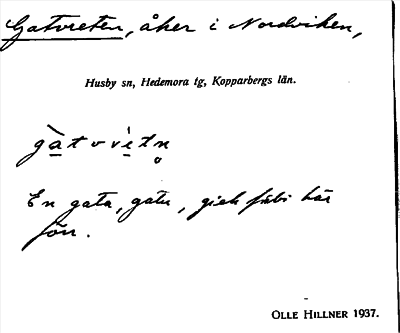 Gatvreten, åker i Nordviken,
Husby sn, Hedemora tg, Kopparbergs län.
En gata, gatu, gick förbi här
förr.
OLLE HILLNER 1937.